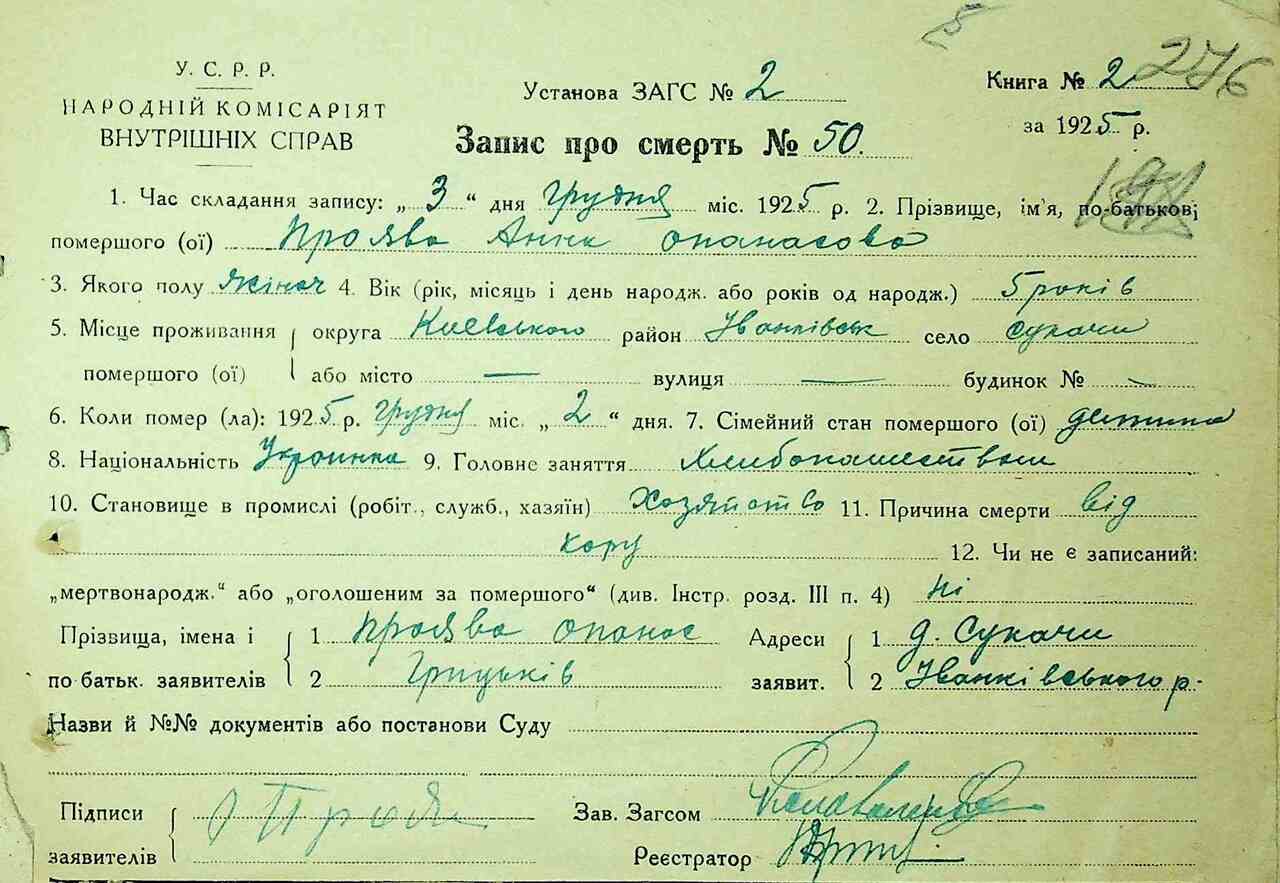 5
276
У. С. Р. Р.
НАРОДНІЙ КОМІСАРІЯТ
ВНУТРІШНІХ СПРАВ
Установа ЗАГС № 2
Книга № 2
за 1925 р.
Запис про смерть № 50.
1. Час складання запису: „ 3 “ дня грудня міс. 1925 р. 2. Прізвище, ім'я, по-батькові
помершого (ої) Проява Анна опанасова
3. Якого полу жіноч 4. Вік (рік, місяць і день народж. або років од народж.) 5 років
5. Місце проживання округа Киевського район Іванківськ село сукачи
помершого (ої) або місто — вулиця — будинок № —
6. Коли помер (ла): 1925 р. грудня міс. „ 2 “ дня. 7. Сімейний стан помершого (ої) детина
8. Національність Украинка 9. Головне заняття Хлибопашеством
10. Становище в промислі (робіт., служб., хазяїн) Хозяйство 11. Причина смерти від
кору 12. Чи не є записаний:
„мертвонародж.“ або „оголошеним за помершого“ (див. Інстр. розд. III п. 4) Ні
Прізвища, імена і 1 Проява опанас Адреси 1 д. Сукачи
по батьк. заявителів 2 Грицьків заявит. 2 Іванківського р.
Назви й №№ документів або постанови Суду
Підписи Проя Зав. Загсом
заявителів Реєстратор